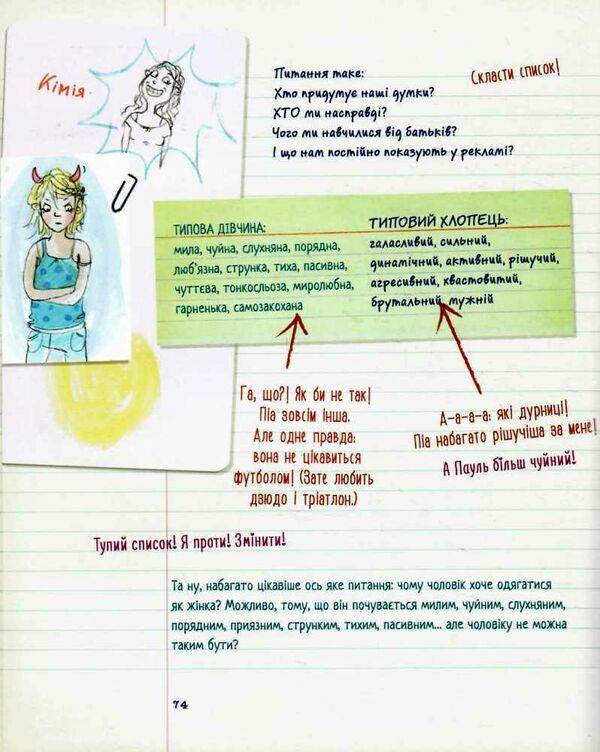 Кімія.
Питання таке:
Скласти список!
Хто придумує наші думки?
ХТО ми насправді?
Чого ми навчилися від батьків?
І що нам постійно показують у рекламі?
ТИПОВА ДІВЧИНА:
мила, чуйна, слухняна, порядна,
люб'язна, струнка, тиха, пасивна,
чуттєва, тонкосльоза, миролюбна,
гарненька, самозакохана
ТИПОВИЙ ХЛОПЕЦЬ:
галасливий, сильний,
динамічний, активний, рішучий,
агресивний, хвастовитий,
брутальний, мужній
Га, що?! Як би не так!
Піа зовсім інша.
Але одне правда:
вона не цікавиться
футболом! (Зате любить
дзюдо і тріатлон.)
А-а-а-а: які дурниці!
Піа набагато рішучіша за мене!
А Пауль більш чуйний!
Тупий список! Я проти! Змінити!
Та ну, набагато цікавіше ось яке питання: чому чоловік хоче одягатися
як жінка? Можливо, тому, що він почувається милим, чуйним, слухняним,
порядним, приязним, струнким, тихим, пасивним... але чоловіку не можна
таким бути?
74